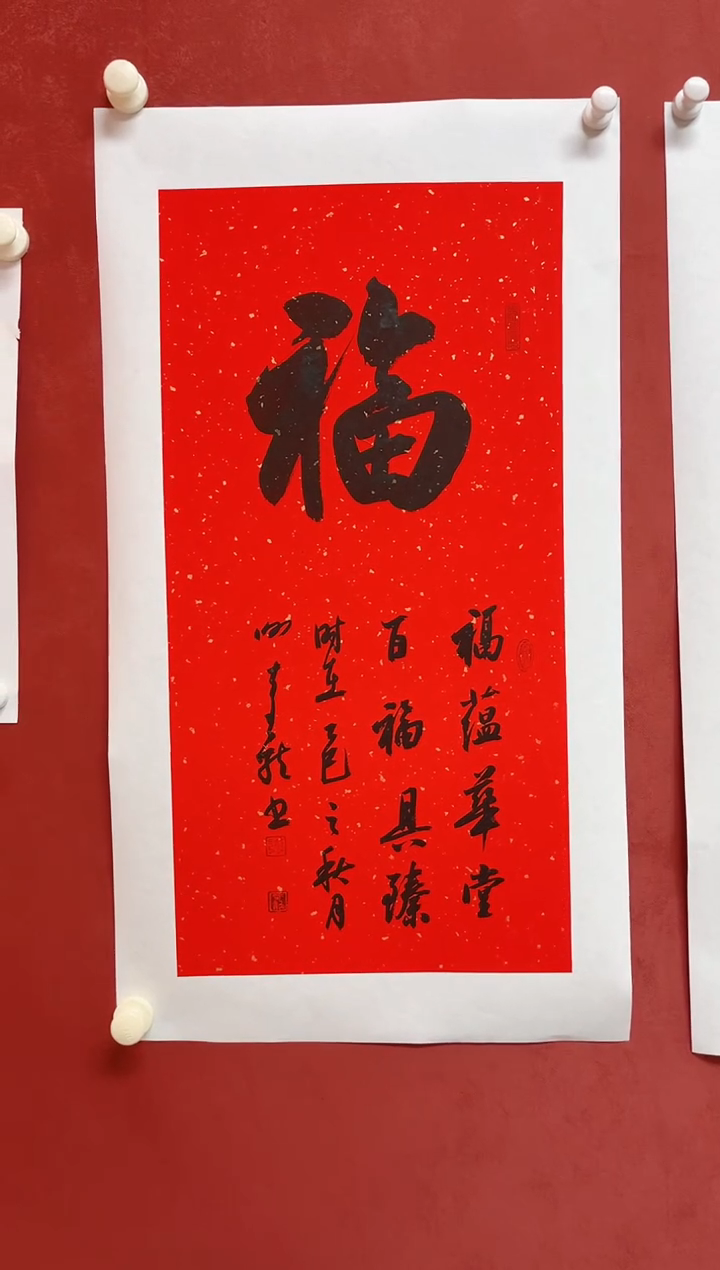 福
福蕴华堂
百福具臻
时在乙巳之秋月
书